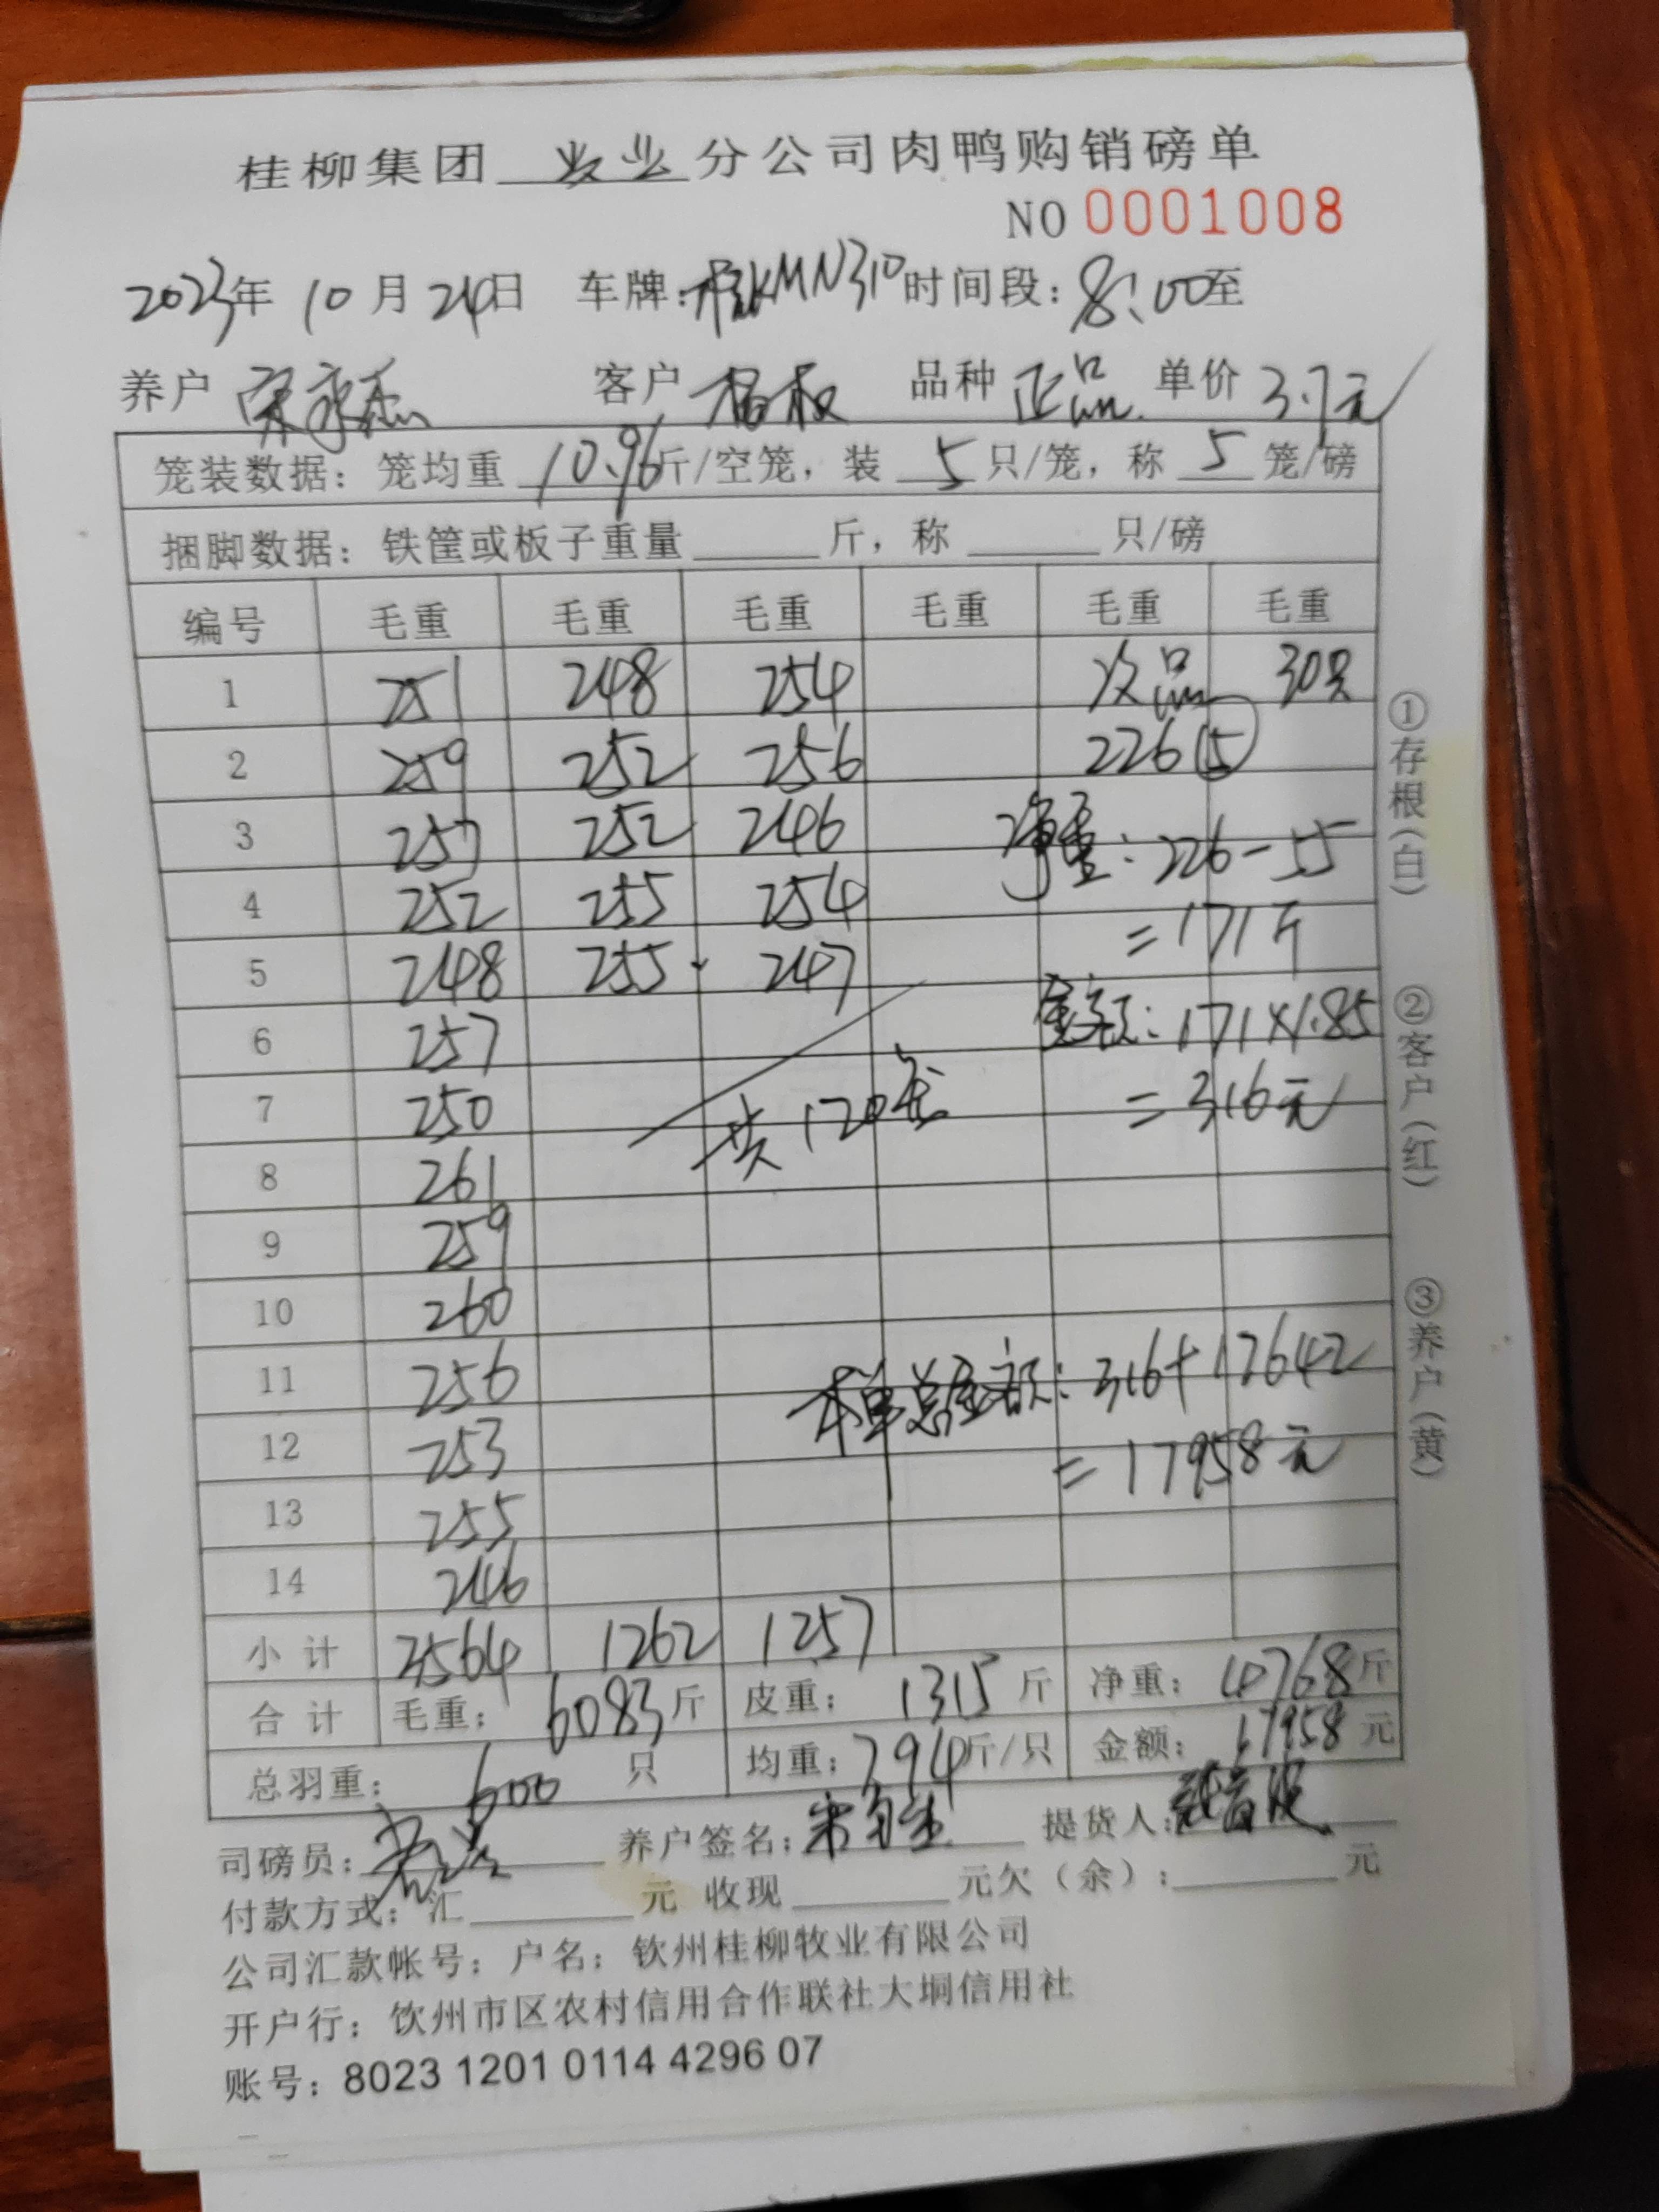 桂柳集团 牧业 分公司肉鸭购销磅单
NO 0001008
2023年 10月 24日 车牌:桂KMN310 时间段:8:00至
养户 客户 杨权 品种 正品 单价 3.7元
笼装数据:笼均重 10.96斤/空笼,装 5 只/笼,称 5 笼/磅
捆脚数据:铁筐或板子重量______斤,称______只/磅
编号 毛重 毛重 毛重 毛重 毛重 毛重
1 251 248 254 次品 30只
2 259 252 256 226 (5)
3 257 252 246 净重:226-55
4 252 255 254 =171斤
5 248 255 247
6 257 金额:171×1.85
7 250 共120笼 =316元
8 261
9 259
10 260
11 256 本单总金额:316+17642
12 253 =17958元
13 255
14 246
小计 3564 1262 1257
合计 毛重:6083斤 皮重:1315斤 净重:4768斤
总羽重:600只 均重:7.94斤/只 金额:17958元
司磅员: 养户签名: 提货人:
付款方式:汇______元 收现______元欠(余):______元
公司汇款帐号:户名:钦州桂柳牧业有限公司
开户行:钦州市区农村信用合作联社大垌信用社
账号:8023 1201 0114 4296 07
①存根(白)
②客户(红)
③养户(黄)